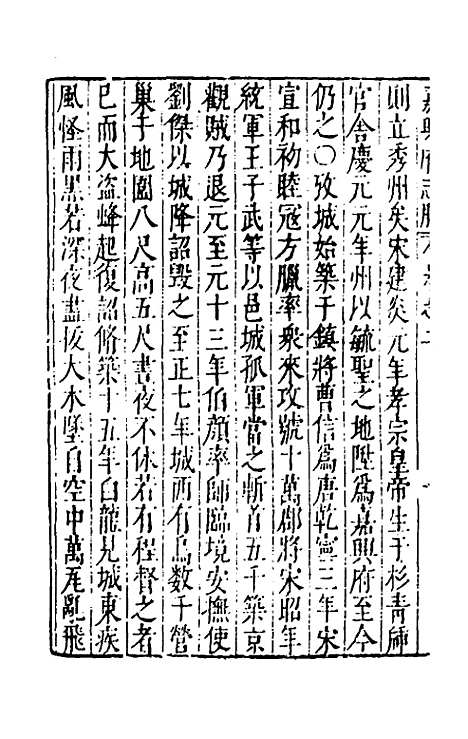 嘉興府志
則立秀州矣宋建炎元年孝宗皇帝生于杉青牐
官舍慶元元年州以毓聖之地陞爲嘉興府至今
仍之○攷城始築于鎮將曹信爲唐乾寧三年宋
宣和初睦冦方臘率衆來攻號十萬郡將宋昭年
統軍王子武等以邑城孤軍當之斬首五千築京
觀賊乃退元至元十三年伯顏率師臨境安撫使
劉傑以城降詔毀之至正七年城西有烏數千營
巢于地圍八尺高五尺晝夜不休若有程督之者
已而大盜蜂起復詔脩築十五年白龍見城東疾
風怪雨黑若深夜盡拔大木墜自空中萬瓦亂飛